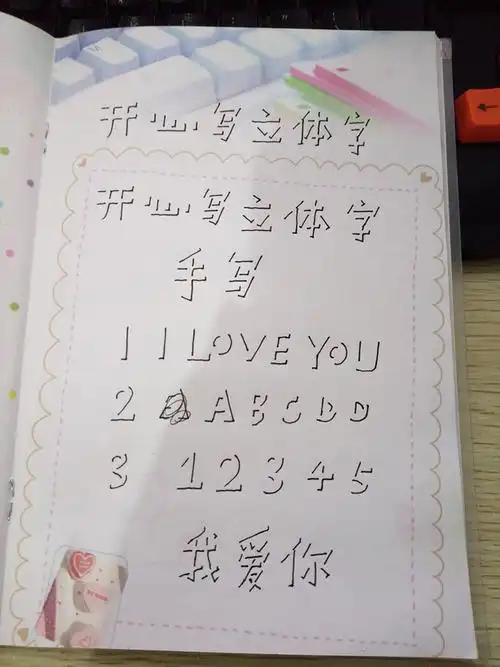 开心写立体字
开心写立体字
手写
1 I LOVE YOU
2 A B C D D
3 1 2 3 4 5
我爱你